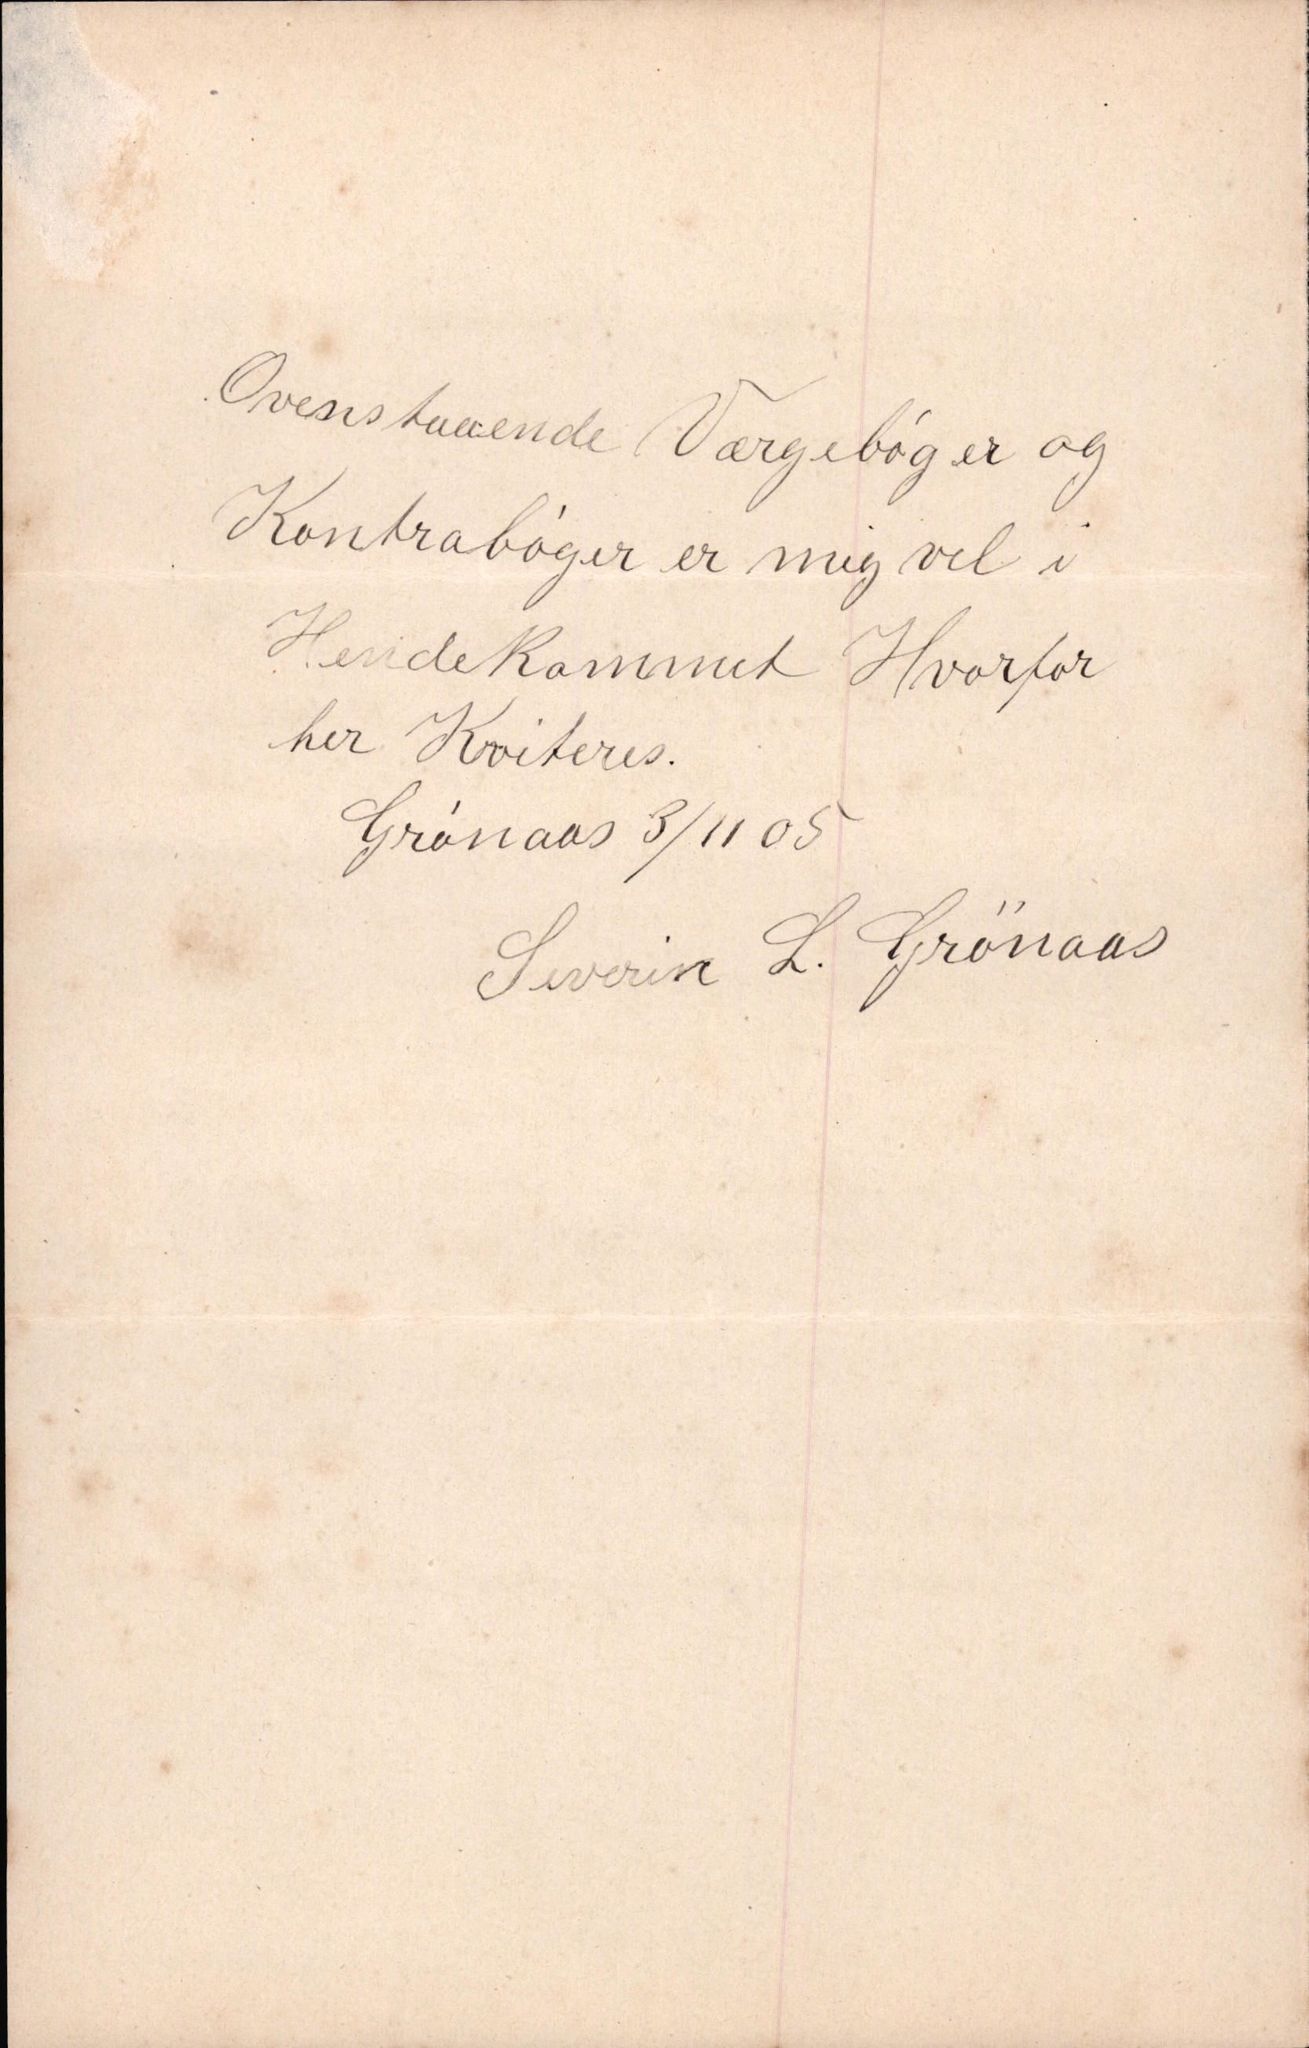 Ovenstaaende Værgebóger og
Kontrabóger er mig vel i
Hendekommet Hvorfor
her Kviteres.
Grónaas 3/11 05
Severin L. Grönaas